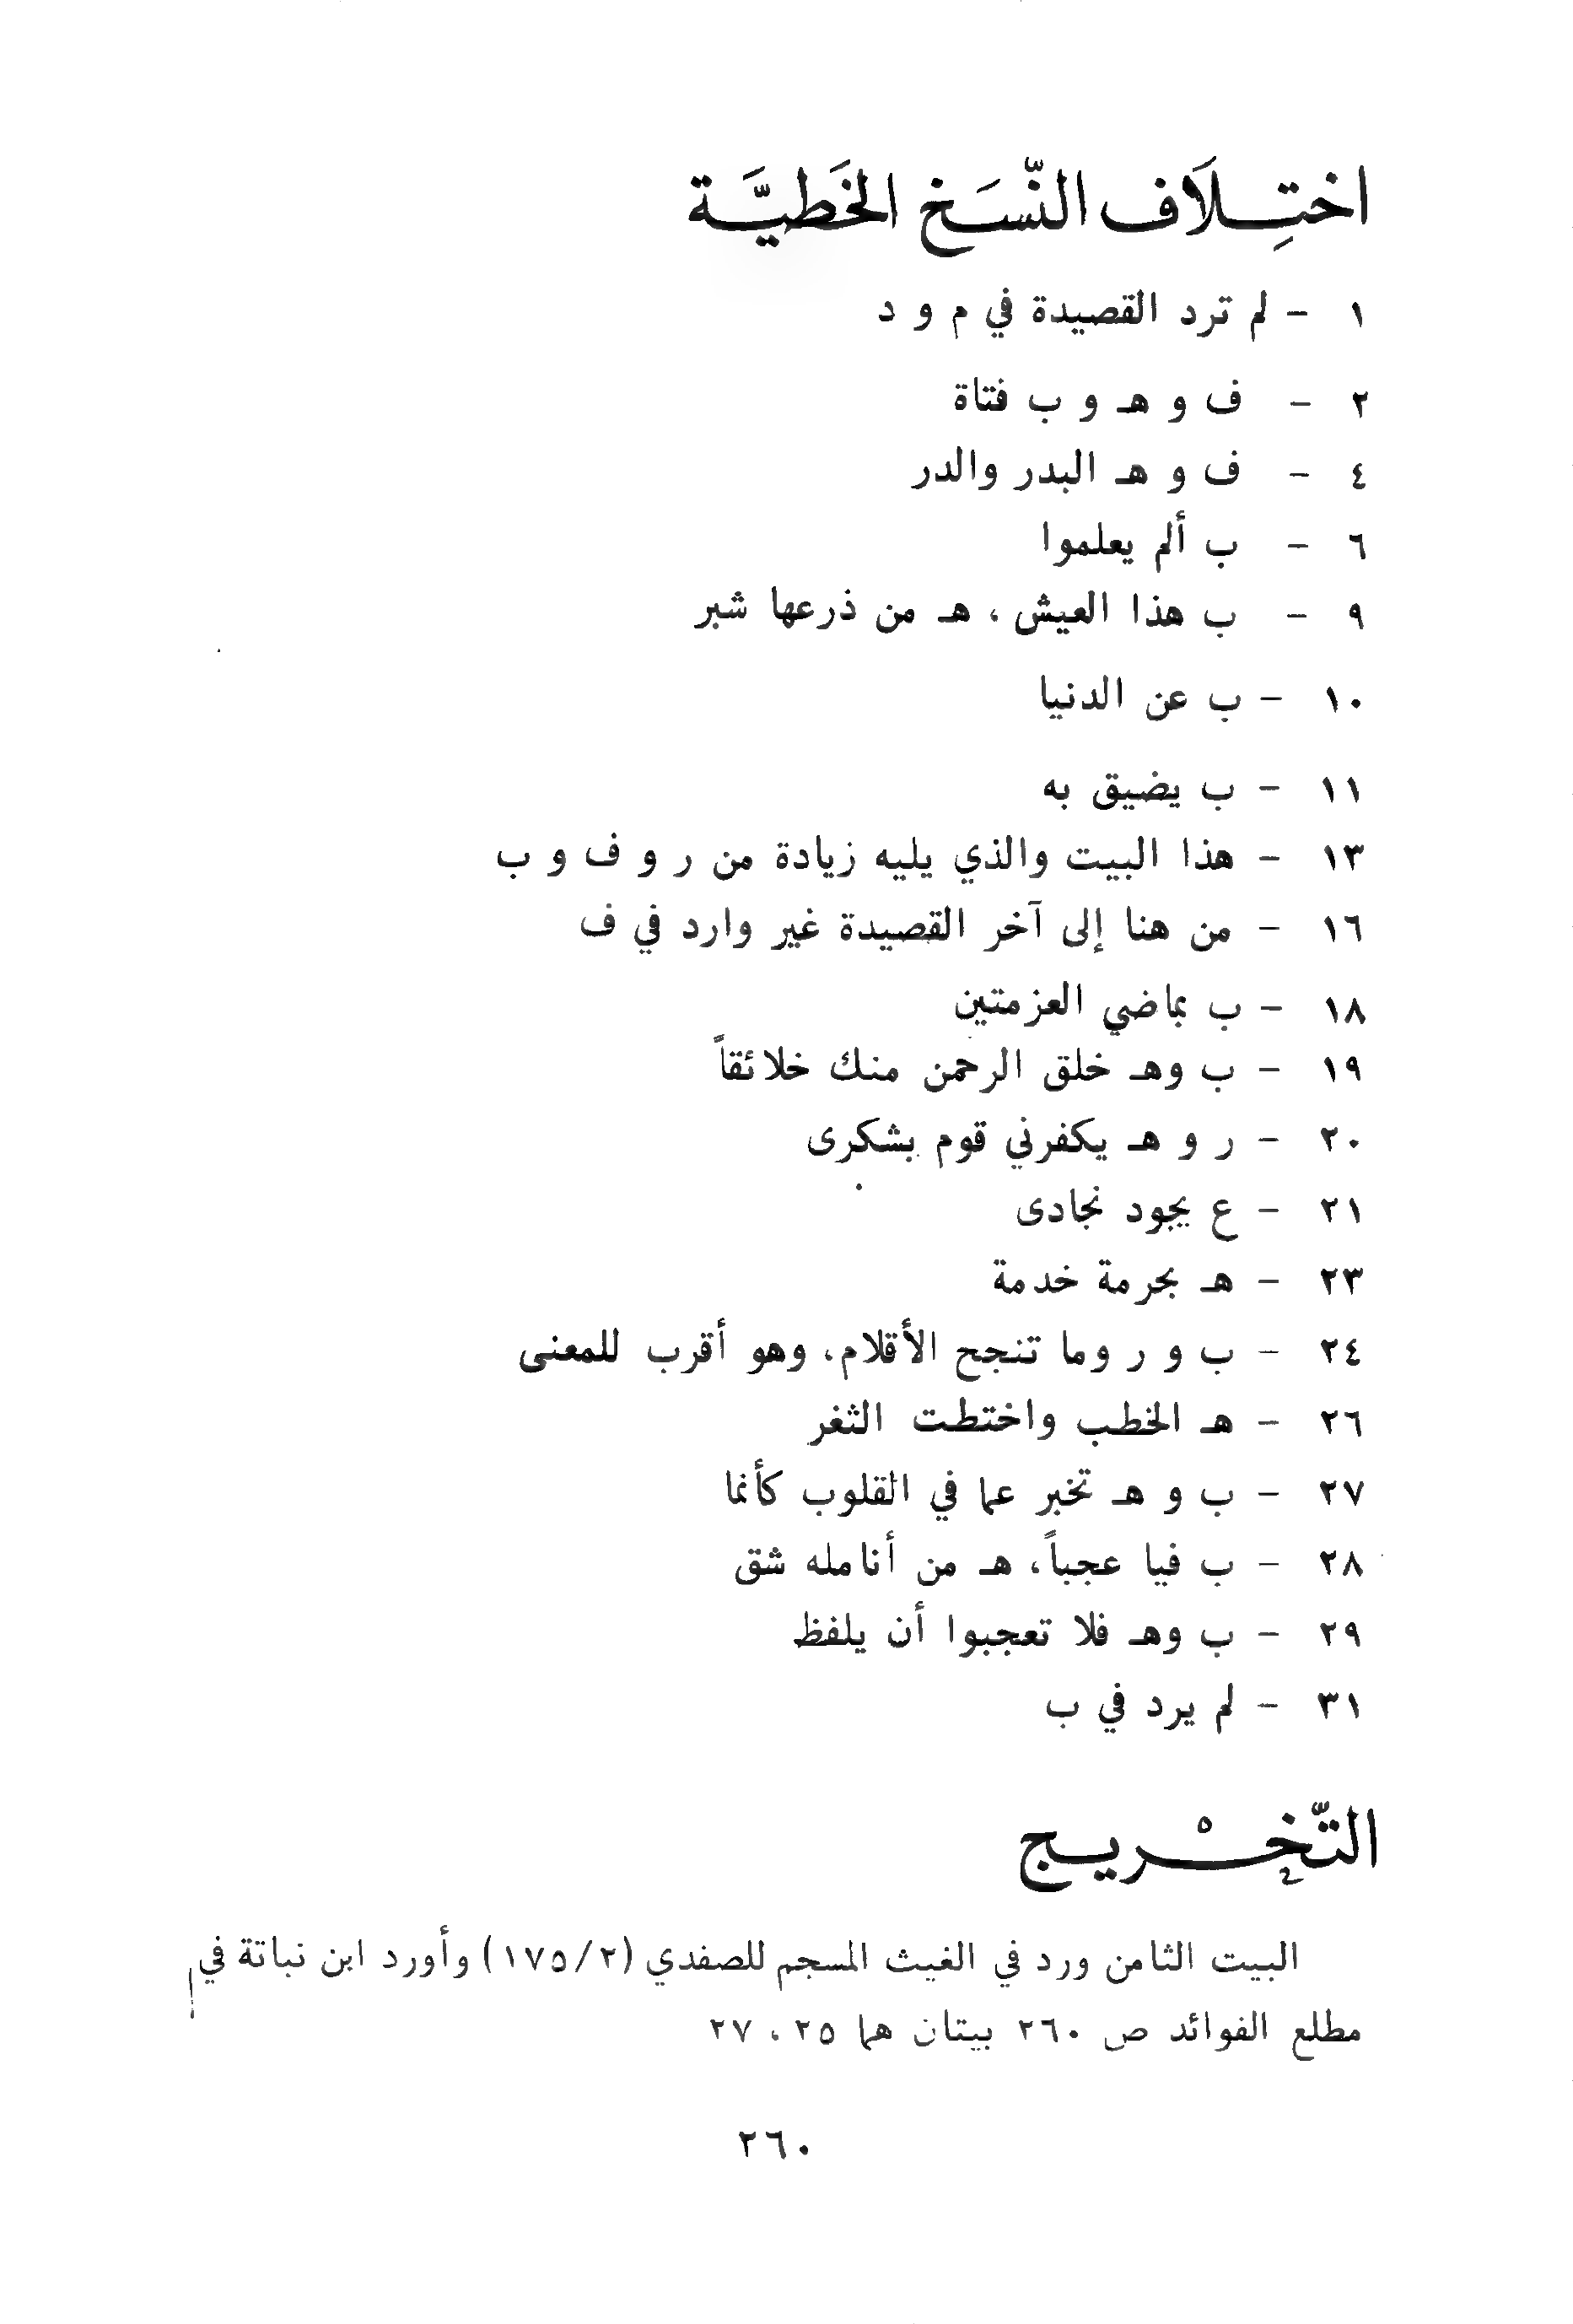 اختِلَاف النّسَخ الخَطيَّة
١ - لم ترد القصيدة في م و د
٢ - ف و هـ و ب فتاة
٤ - ف و هـ البدر والدر
٦ - ب ألم يعلموا
٩ - ب هذا العيش ، هـ من ذرعها شبر
١٠ - ب عن الدنيا
١١ - ب يضيق به
١٣ - هذا البيت والذي يليه زيادة من ر و ف و ب
١٦ - من هنا إلى آخر القصيدة غير وارد في ف
١٨ - ب بماضي العزمتين
١٩ - ب وهـ خلق الرحمن منك خلائقاً
٢٠ - ر و هـ يكفرني قوم بشكرى
٢١ - ع يجود نجادى
٢٣ - هـ بجرمة خدمة
٢٤ - ب و ر وما تنجح الأقلام، وهو أقرب للمعنى
٢٦ - هـ الخطب واختطت الثغر
٢٧ - ب و هـ تخبر عما في القلوب كأنما
٢٨ - ب فيا عجباً، هـ من أنامله شق
٢٩ - ب وهـ فلا تعجبوا أن يلفظ
٣١ - لم يرد في ب
التّخْريج
البيت الثامن ورد في الغيث المسجم للصفدي (١٧٥/٢) وأورد ابن نباتة في
مطلع الفوائد ص ٢٦٠ بيتان هما ٢٥ ، ٢٧
٢٦٠